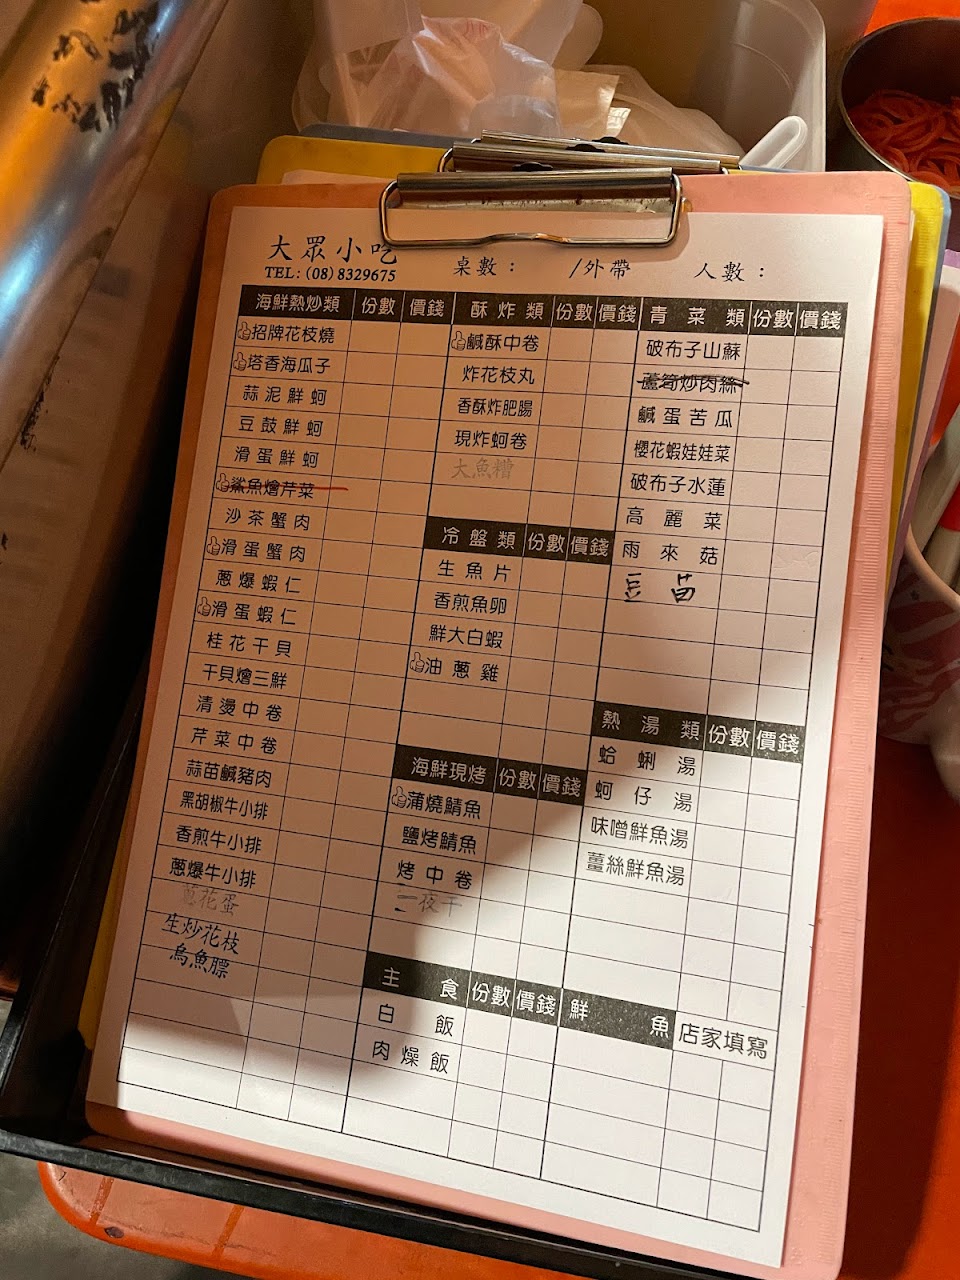 大眾小吃
TEL:(08)8329675
桌數： /外帶 人數：
海鮮熱炒類 份數 價錢
招牌花枝燒
塔香海瓜子
蒜泥鮮蚵
豆鼓鮮蚵
滑蛋鮮蚵
鯊魚燴芹菜
沙茶蟹肉
滑蛋蟹肉
蔥爆蝦仁
滑蛋蝦仁
桂花干貝
干貝燴三鮮
清燙中卷
芹菜中卷
蒜苗鹹豬肉
黑胡椒牛小排
香煎牛小排
蔥爆牛小排
蔥花蛋
生炒花枝
烏魚膘
酥炸類 份數 價錢
鹹酥中卷
炸花枝丸
香酥炸肥腸
現炸蚵卷
大魚糟
冷盤類 份數 價錢
生魚片
香煎魚卵
鮮大白蝦
油蔥雞
海鮮現烤 份數 價錢
蒲燒鯖魚
鹽烤鯖魚
烤中卷
一夜干
主食 份數 價錢
白飯
肉燥飯
青菜類 份數 價錢
破布子山蘇
蘆筍炒肉絲
鹹蛋苦瓜
櫻花蝦娃娃菜
破布子水蓮
高麗菜
雨來菇
豆苗
熱湯類 份數 價錢
蛤蜊湯
蚵仔湯
味噌鮮魚湯
薑絲鮮魚湯
鮮魚 店家填寫